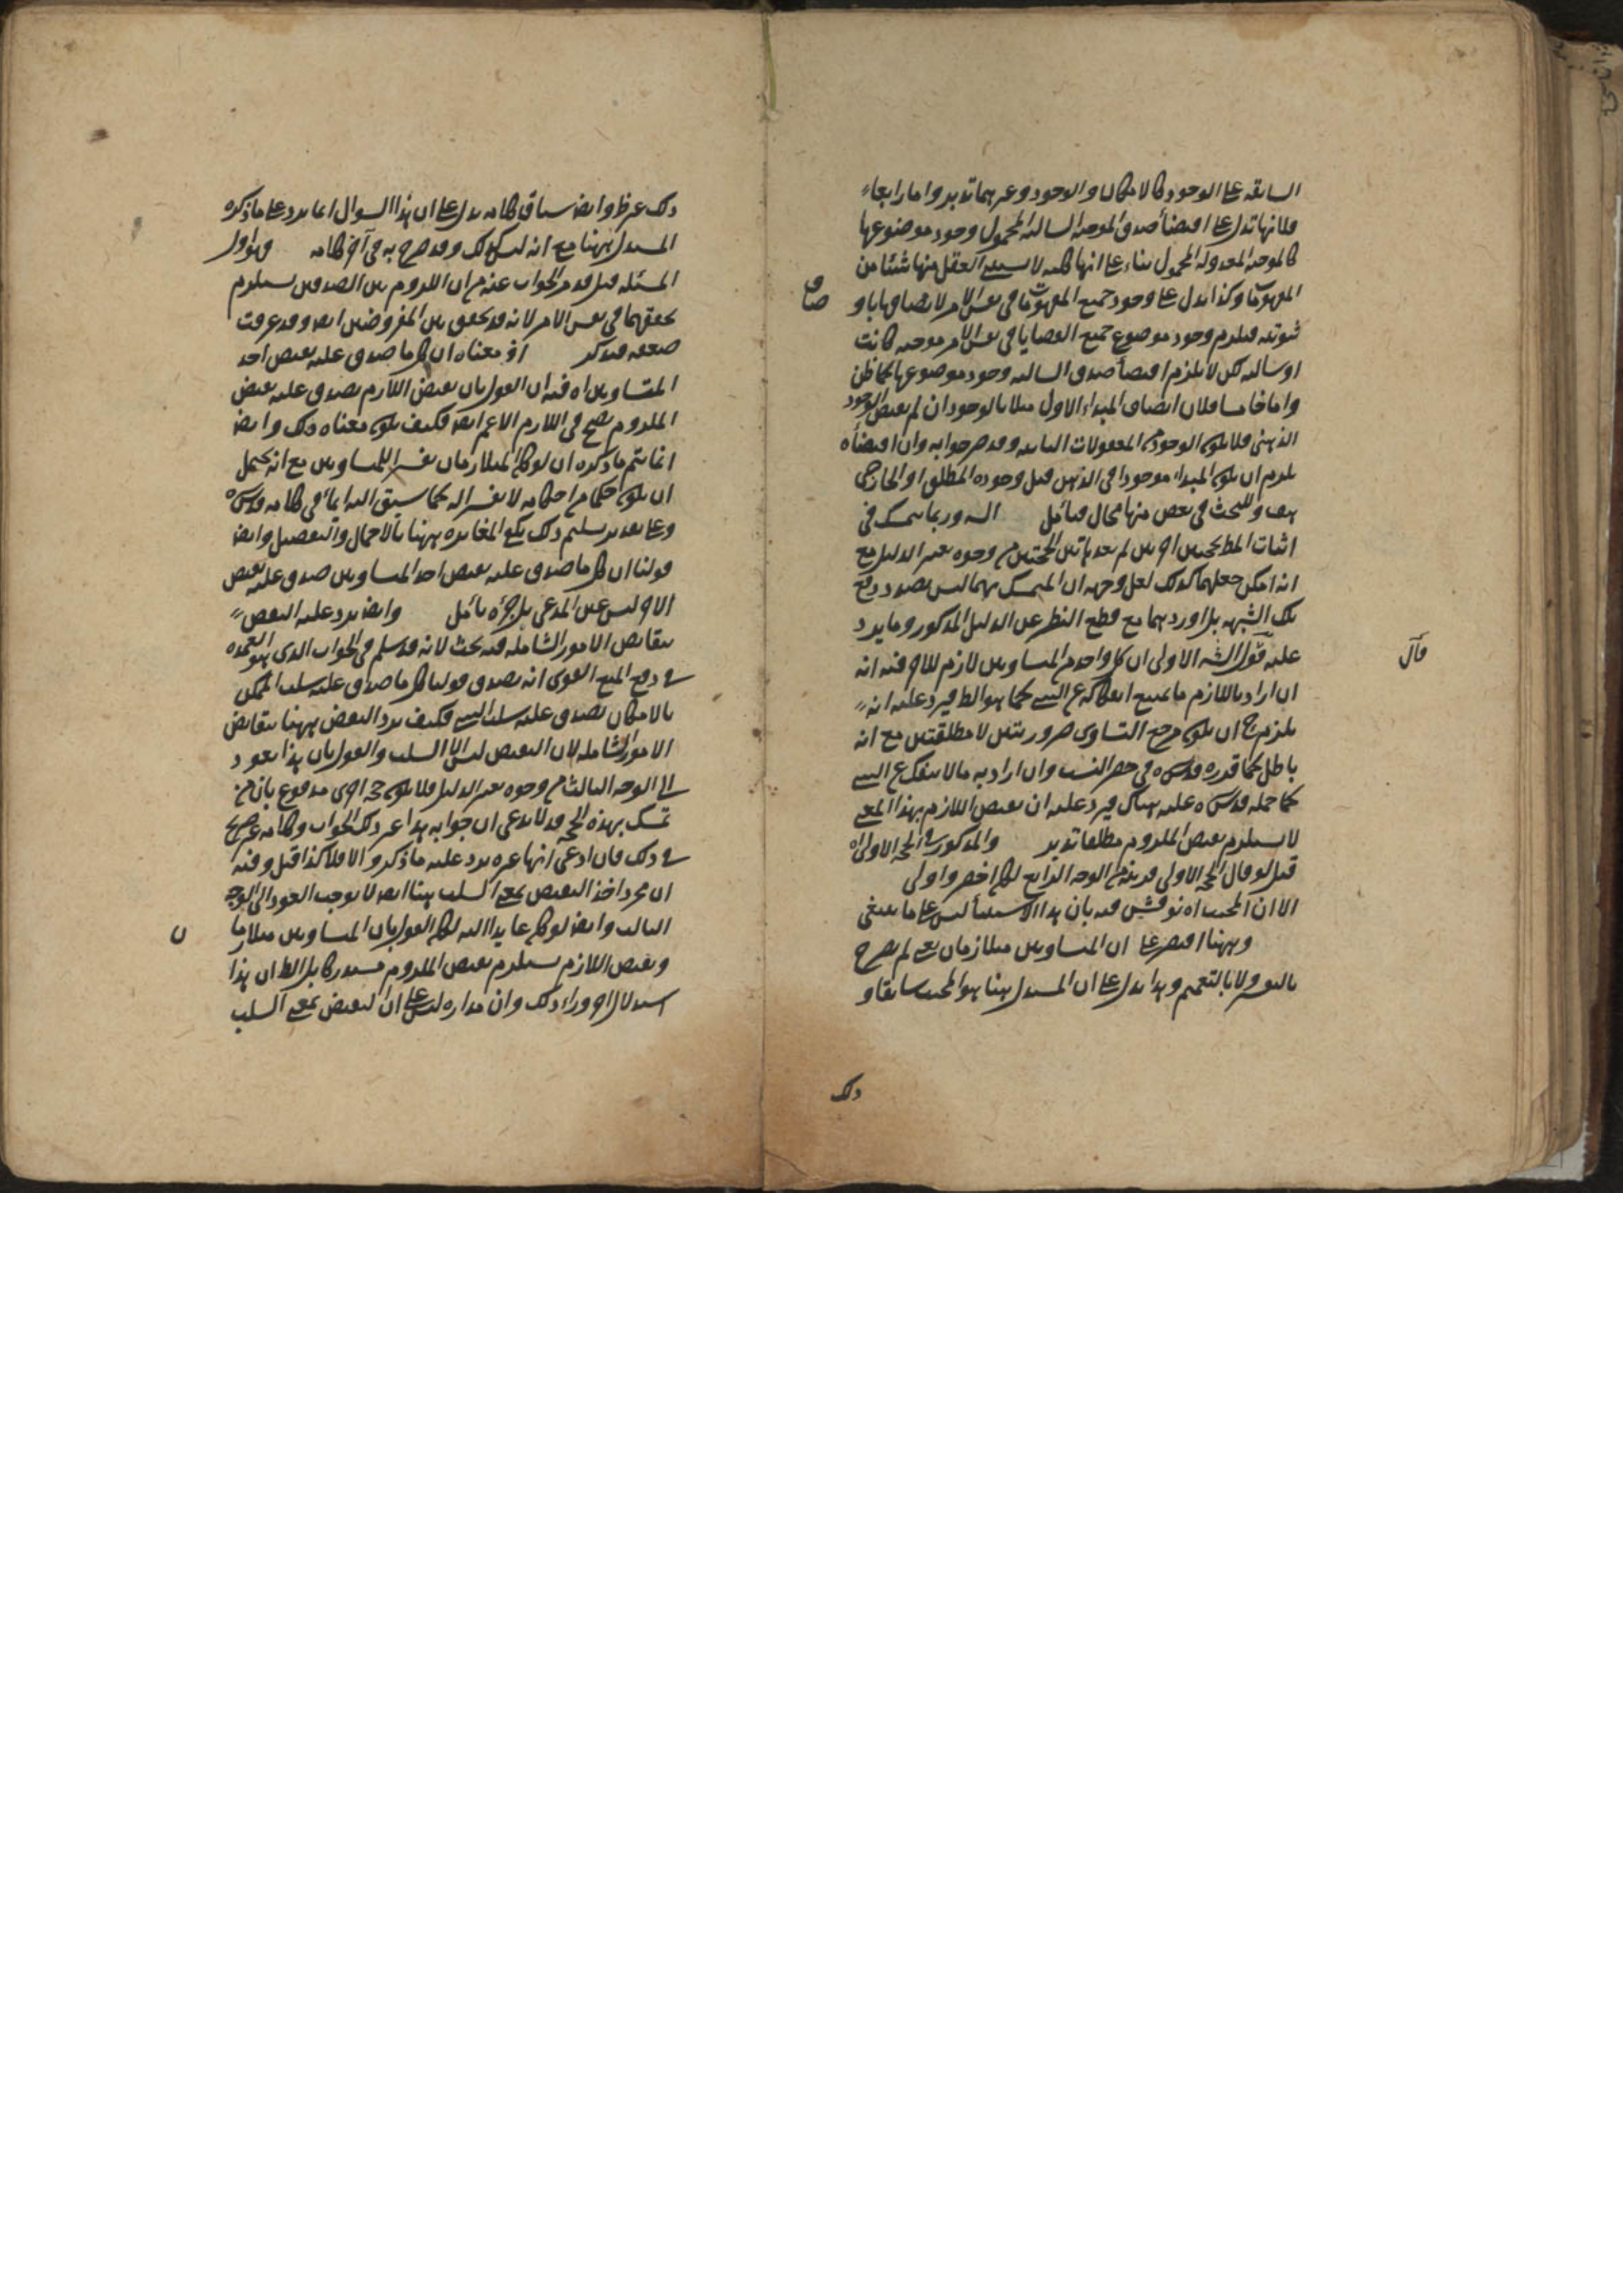 السابقه على الوجود كالامكان والوجود وغيرهما تدبر واما رابعا
فلانها تدل على اقتضاء صدق الموجبه السالبه المحمول وجود موضوعها
كالموجبه المعدوله المحمول بناء على انها كليه لا يستثنى العقل منها شيئا من
المفهومات وكذا يدل على وجود جميع المفهومات في نفس الامر لاتصافها باو
ثبوته فيلزم وجود موضوع جميع القضايا في نفس الامر موجبه كانت
او سالبه لكن لا يلزم اقتضاء صدق السالبه وجود موضوعها كما ظن
واما خامسا فلان اتصاف المبداء الاول مثلا بالوجود ان لم يقتض الوجود
الذهني فلا يكون الوجود من المعقولات الثانيه وقد مر جوابه وان اقتضاه
يلزم ان يكون المبداء موجودا في الذهن قبل وجوده المطلق او الخارجي
هف وللبحث في بعض منها مجال فتامل اليه وربما يتمسك في
اثبات المط بحجتين اخريين لم يعد هاتين الحجتين من وجوه تغيير الدليل مع
انه امكن جعلهما كذلك لعل وجهه ان المتمسك بهما ليس بصدد دفع
تلك الشبهه بل اوردهما مع قطع النظر عن الدليل المذكور وما يرد
عليه قول الشه الاولى ان كل واحد من المتساويين لازم للاخر فيه انه
ان اراد باللازم ما يمتنع انفكاكه عن الشيء كما هو الظ فيرد عليه انه
يلزم ح ان يكون مرجع التساوي ضروريتين لا مطلقتين مع انه
باطل كما قرره قدس سره في حصر النسب وان اراد به ما لا ينفك عن الشيء
كما حمله قدس سره عليه هناك فيرد عليه ان نقيض اللازم بهذا المعنى
لا يستلزم نقيض الملزوم مطلقا تدبر والمذكور في الحجه الاولى اه
قيل لو قال الحجه الاولى قريبه من الوجه الرابع لكان اخصر واولى
الا ان المجيب اه نوقش فيه بان هذا الاستثناء ليس على ما ينبغي
وههنا اقتصر على ان المتساويين متلازمان يعني لم يصرح
بالتفسير ولا بالتعميم وهذا يدل على ان المستدل هنا هو المجيب سابقا و
ذلك
قال
صاف
ذلك غير ظ وايضا سياق كلامه يدل على ان هذا السوال انما يرد على ما ذكره
المستدل ههنا مع انه ليس كذلك وقد صرح به في آخر كلامه وهو اول
المسئله قيل قد مر الجواب عنه من ان اللزوم بين الصدقين يستلزم
تحققهما في نفس الامر لانه قد تحقق بين المفروضين ايضا وقد عرفت
ضعفه فتذكر اذ معناه ان كل ما صدق عليه نقيض احد
المتساويين اه فيه ان القول بان نقيض اللازم يصدق عليه نقيض
الملزوم يصح في اللازم الاعم ايضا فكيف يكون معناه ذلك وايضا
انما يتم ما ذكره ان لو كان المتلازمان تفسيرا للمتساويين مع انه يحتمل
ان يكون حكما من احكامه لا تفسيرا له كما سبق اليه ايماء في كلامه قدس سره
وعلى تقدير تسليم ذلك يكفي المغايره ههنا بالاجمال والتفصيل وايضا
قولنا ان كل ما صدق عليه نقيض احد المتساويين صدق عليه نقيض
الاخر ليس عين المدعى بل جزؤه تامل وايضا يرد عليه النقض
بنقايض الامور الشامله فيه بحث لانه قد سلم في الجواب الذي هو العمده
في دفع المنع القوي انه يصدق قولنا كل ما صدق عليه سلب الممكن
بالامكان يصدق عليه سلب الشيء فكيف يرد النقض ههنا بنقايض
الامور الشامله لان النقيض ليس الا السلب والقول بان هذا يعود
الى الوجه الثالث من وجوه تغيير الدليل فلا يكون حجه اخرى مدفوع بان من
تمسك بهذه الحجه قد لا يدعى ان جوابه هذا غير ذلك الجواب وكلامه غير صريح
في ذلك فان ادعى انها غيره يرد عليه ما ذكر والا فلا كذا قيل وفيه
ان مجرد اخذ النقيض بمعنى السلب هنا ايضا لا يوجب العود الى الوجه
الثالث وايضا لو كان عايدا اليه لكان القول بان المتساويين متلازمان
ونقيض اللازم يستلزم نقيض الملزوم مستدركا بل الظ ان هذا
استدلال اخر وراء ذلك وان مداره ليس على ان النقيض بمعنى السلب